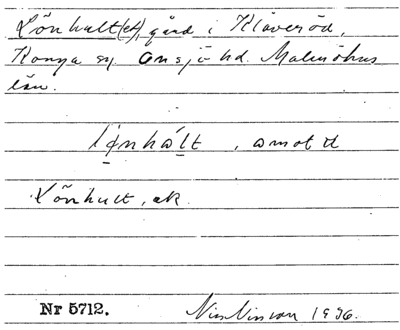 Lönhult(et), gård i Klåveröd,
Konga sn. Onsjö hd. Malmöhus
län.
lø̣nhạ́lt, omotd
Lönhult, ek.
Nr 5712. Nils Nilsson 1936.